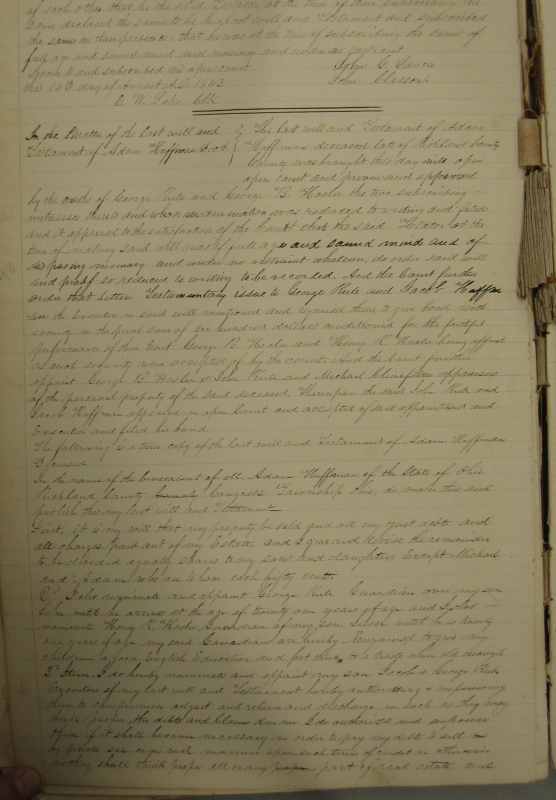 of each other that he the said Testator at the time of then subscribing the
same declared the same to be his last will and Testament and subscribed
the same in their presence that he was at the time of subscribing the same of
full age and sound mind and memory and under no restraint
Sworn to and subscribed in open court
this 14th day of August A.D. 1843
John Clason
E. W. Lake Clk
In the Matter of the last will and
Testament of Adam Huffman Decd.
The last will and Testament of Adam
Huffman deceased late of Richland County
was brought this day into open
open court and proven and approved
by the oaths of George Rule and George B. Hosler the two subscribing
witnesses thereto and whose examination was reduced to writing and filed
and it appeared to the satisfaction of the Court that the said Testator at the
time of making said will was of full age and sound mind and of
disposing memory and under no restraint whatever, do order said will
and proof so reduced to writing to be recorded. And the Court further
order that letters Testamentary issue to George Rule and Jacob Huffman
the Executors in said will mentioned and required them to give bond with
security in the penal sum of six hundred dollars conditioned for the faithful
performance of their trust George B. Hosler and Henry R. Hosler being offered
as such security were accepted of by the court And the Court further
appoint George B. Hosler & John Rule and Michael appraisers
of the personal property of the said deceased Thereupon the said John Rule and
Jacob Huffman appeared in open Court and accepted of said appointment and
Executed and filed his bond
The following is a true copy of the last will and Testament of Adam Huffman
Deceased
In the name of the benevolent of all, Adam Huffman of the State of Ohio
Richland County County Congress Township Ohio, do make this and
publish this my last will and Testament
First, it is my will that my property be sold and all my just debts and
all charges paid out of my Estate, and I give and devise the remainder
to be divided equally shares to my sons and daughters Except Michael
and Adam who are to have each fifty cents.
2d I also nominate and appoint George Rule Guardian over my son
John until he arrives at the age of twenty one years of age and I also
nominate Henry R. Hosler Guardian of my son until he is twenty
one years of age my said Guardians are hereby Required to give my
children a good English Education and put them to a trade when old enough
3d Item I do hereby nominate and appoint my son Jacob & George Rule
Executors of my last will and Testament hereby authorizing & empowering
them to compromise adjust and release and discharge in such as they may
think proper the debts and claims due me I do authorize and empower
them if it shall become necessary in order to pay my debts to sell
by private sale or in such manner upon such terms of credit or otherwise
as they shall think proper all or any proper part of real estate and